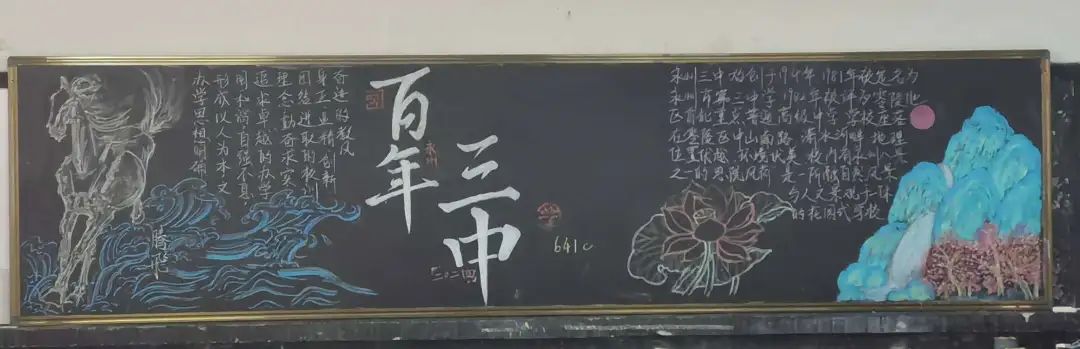 办学思想明确
形成以人为本、文
追求卓越的办学
理念勤奋求实、
团结进取的校训
身正业精、创新
奋进的教风
腾飞
百年
永州
三中
二〇二四
641c
永州三中始创于1914年,1981年校定名为
永州市第三中学,1982年被评为零陵地
区首批重点普通高级中学,学校座落
在零陵区中山南路,潇水河畔,地理
位置优越,环境优美,校内有永州八景
之一的恩院风荷,是一所融自然风景
与人文景观于一体
的花园式学校